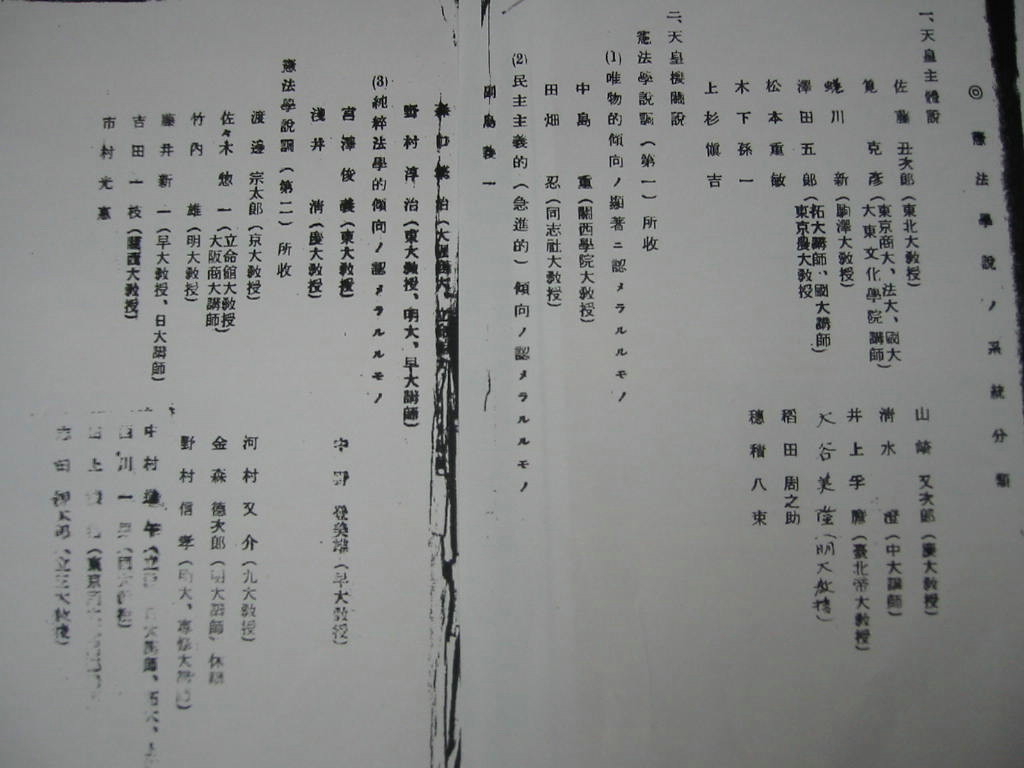 ◎憲法學說ノ系統分類
一、天皇主體說
佐藤丑次郎(東北大教授)
山崎又次郎(慶大教授)
筧克彥(東京商大、法大、國大
大東文化學院講師)
清水澄(中大講師)
蜷川新(駒澤大教授)
井上孚麿(臺北帝大教授)
澤田五郎(拓大講師、國大講師
東京農大教授)
大谷美隆(明大教授)
松本重敏
稻田周之助
木下孫一
穗積八束
上杉愼吉
二、天皇機關說
憲法學說調(第一)所收
(1)唯物的傾向ノ顯著ニ認メラルルモノ
中島重(關西學院大教授)
田畑忍(同志社大教授)
(2)民主主義的(急進的)傾向ノ認メラルルモノ
副島義一
野村淳治(東大教授、明大、早大講師)
(3)純粹法學的傾向ノ認メラルルモノ
宮澤俊義(東大教授)
中野登美雄(早大教授)
淺井淸(慶大教授)
憲法學說調(第二)所收
渡邊宗太郎(京大教授)
河村又介(九大教授)
佐々木惣一(立命館大教授
大阪商大講師)
金森德次郎
竹內雄(明大教授)
野村信孝
藤井新一(早大教授、日大講師)
中村
吉田一枝(關西大教授)
西川一
市村光惠